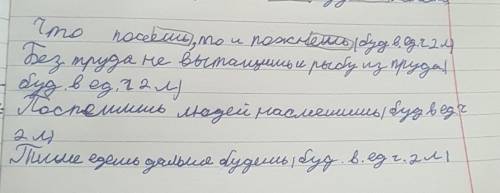 Что посеешь, то и пожнёшь (буд.в.ед.ч 2 л)
Без труда не вытащишь и рыбу из пруда(
буд.в ед.ч 2 л)
Поспешишь людей насмешишь (буд в ед ч
2 л)
Тише едешь дальше будешь (буд. в. ед ч. 2 л)